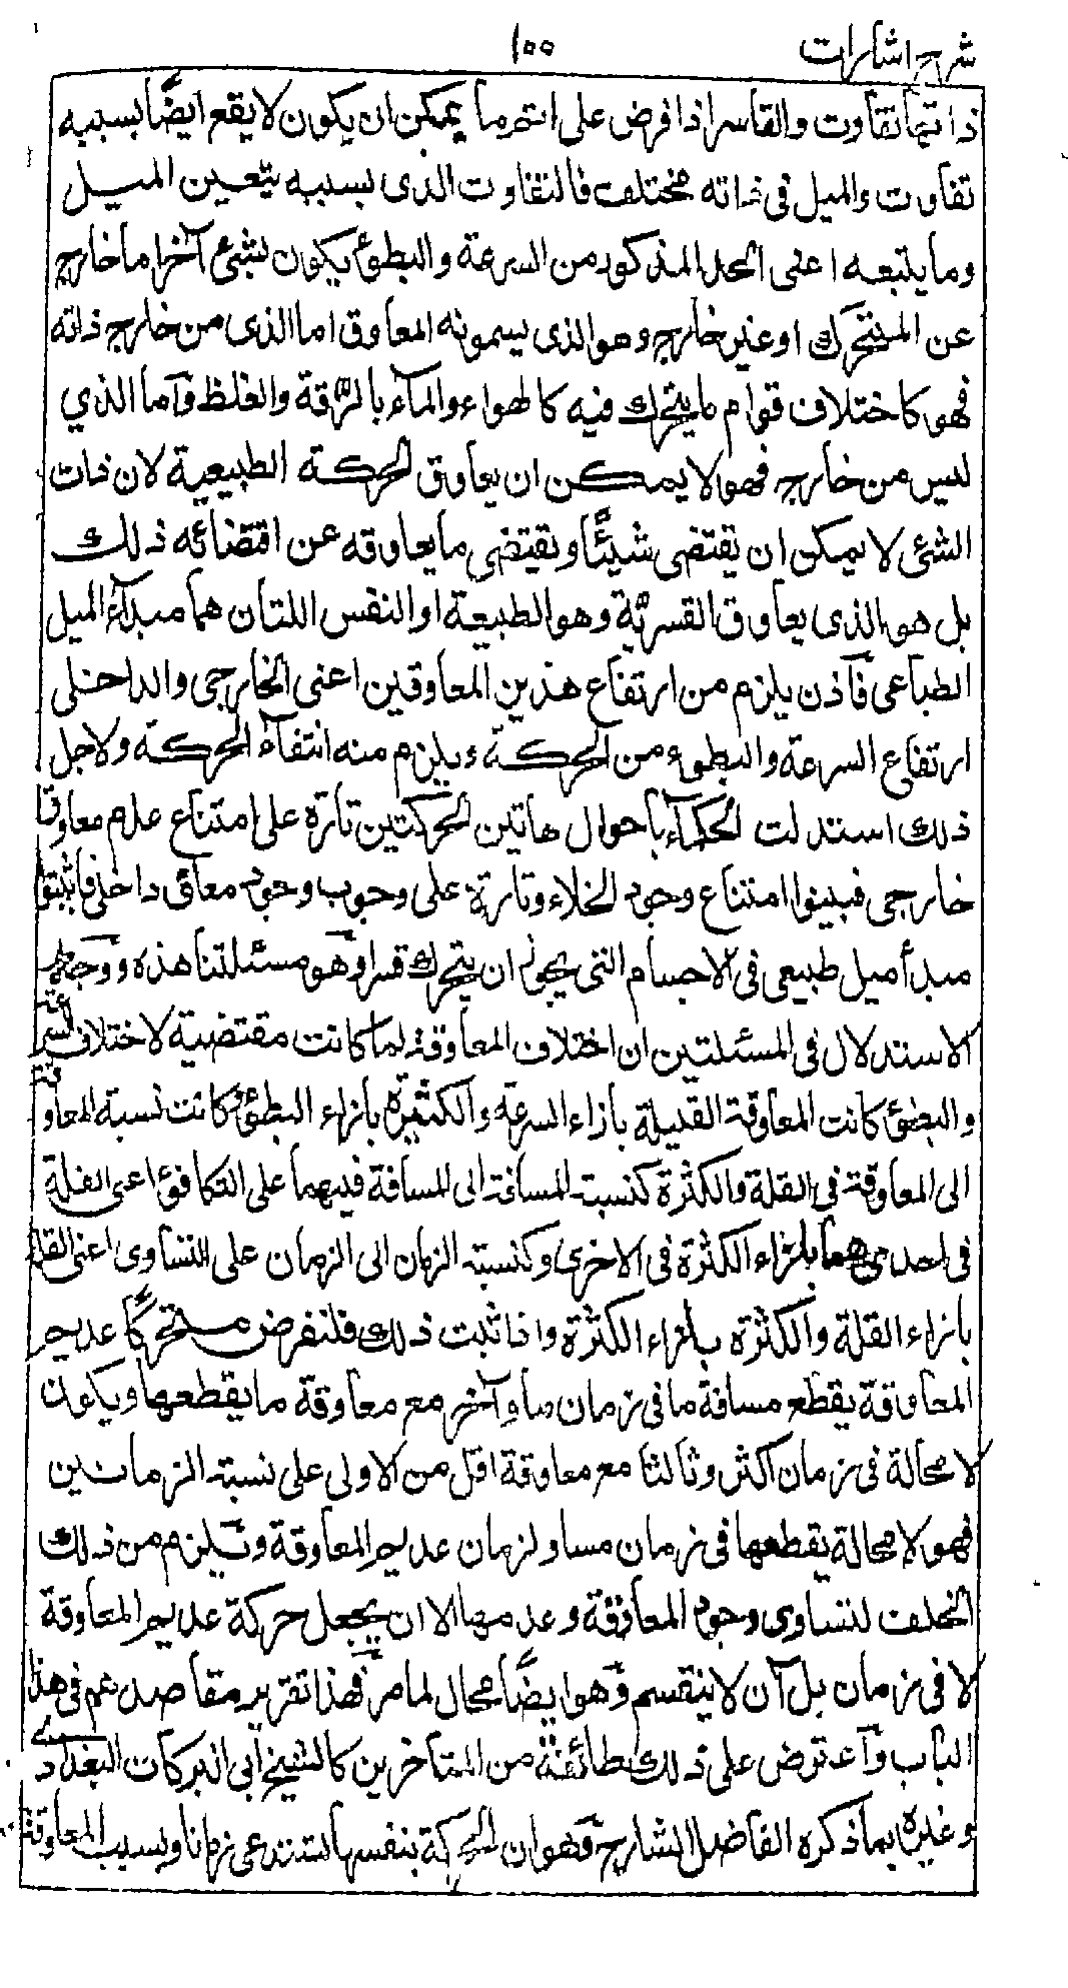 شرح اشارات
١٥٥
ذاتهما تفاوت والقاسر اذا فرض على اتم ما يمكن ان يكون لا يقع ايضًا بسببه
تفاوت والميل في ذاته مختلف فالتفاوت الذى بسببه يتعين الميل
وما يتبعه اعنى الحد المذكور من السرعة والبطوء يكون لشئ آخر اما خارج
عن المتحرك او غير خارج وهو الذى يسمونه المعاوق اما الذى من خارج ذاته
فهو كاختلاف قوام ما يتحرك فيه كالهواء والمآء بالرقة والغلظ وآما الذي
ليس من خارج فهو لا يمكن ان يعاوق الحركة الطبيعية لان ذات
الشئ لا يمكن ان يقتضى شيئًا ويقتضى ما يعاوقه عن اقتضائه ذلك
بل هو الذى يعاوق القسريّة وهو الطبيعة او النفس اللتان هما مبدآء الميل
الطباعى فآذن يلزم من ارتفاع هذين المعاوقين اعنى الخارجى والداخلى
ارتفاع السرعة والبطوء من الحركة ويلزم منه انتفآء الحركة ولاجل
ذلك استدلت الحكمآء باحوال هاتين الحركتين تارة على امتناع عدم معاوق
خارجى فبينوا امتناع وجود الخلاء وتارة على وجوب وجود معاوق داخلى فاثبتوا
مبدأ ميل طبيعى فى الاجسام التى يجوز ان يتحرك قسرا وهو مسئلتنا هذه ووجه
الاستدلال فى المسئلتين ان اختلاف المعاوقة لما كانت مقتضية لاختلاف السرعة
والبطئ كانت المعاوقة القليلة بازاء السرعة والكثيرة بازاء البطئ وكانت نسبة المعاوقة
الى المعاوقة فى القلة والكثرة كنسبة المسافة الى المسافة فيهما على التكافؤ اعنى القلة
فى احدىهما بازاء الكثرة فى الاخرى وكنسبة الزمان الى الزمان على التساوى اعنى القلة
بازاء القلة والكثرة بازاء الكثرة واذا ثبت ذلك فلنفرض متحركًا عديم
المعاوقة يقطع مسافة ما فى زمان ما وآخر مع معاوقة ما يقطعها ويكون
لا محالة فى زمان اكثر وثالثا مع معاوقة اقل من الاولى على نسبة الزمانين
فهو لا محالة يقطعها فى زمان مساو لزمان عديم المعاوقة ويلزم من ذلك
الخلف لتساوى وجود المعاوقة وعدمها الا ان يجعل حركة عديم المعاوقة
لا فى زمان بل آن لا ينقسم وهو ايضًا محال لما مر فهذا تقرير مقاصدهم فى هذا
الباب وآعترض على ذلك طائفة من المتأخرين كالشيخ ابى البركات البغدادى
وغيره بما ذكره الفاضل الشارح وهو ان الحركة بنفسها تستدعى زمانا وبسبب المعاوقة